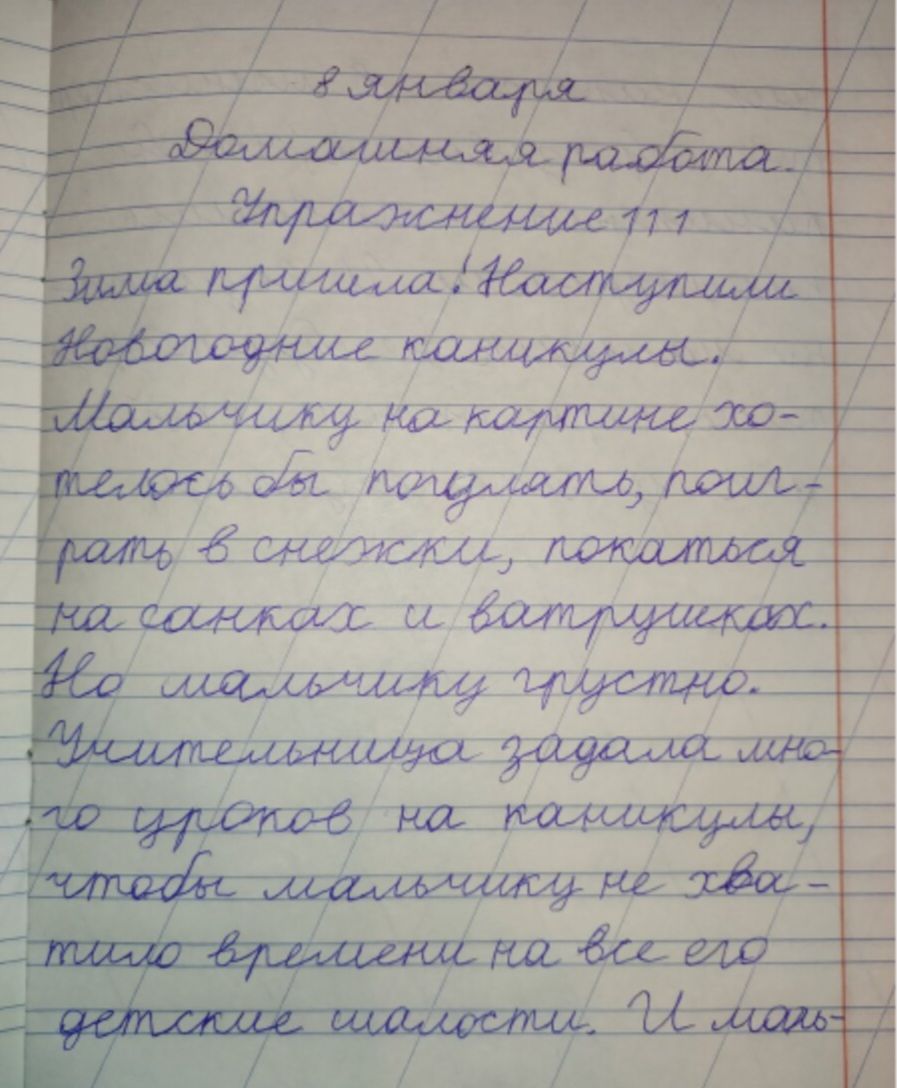 8 января
Домашняя работа.
Упражнение 111
Зима пришла! Наступили
Новогодние каникулы.
Мальчику на картине хо-
телось бы погулять, поиг-
рать в снежки, покаться
на санках и ватрушках.
Но мальчику грустно.
Учительница задала мно-
го уроков на каникулы,
чтобы мальчику не хва-
тило времени на все его
детские шалости. И маль-